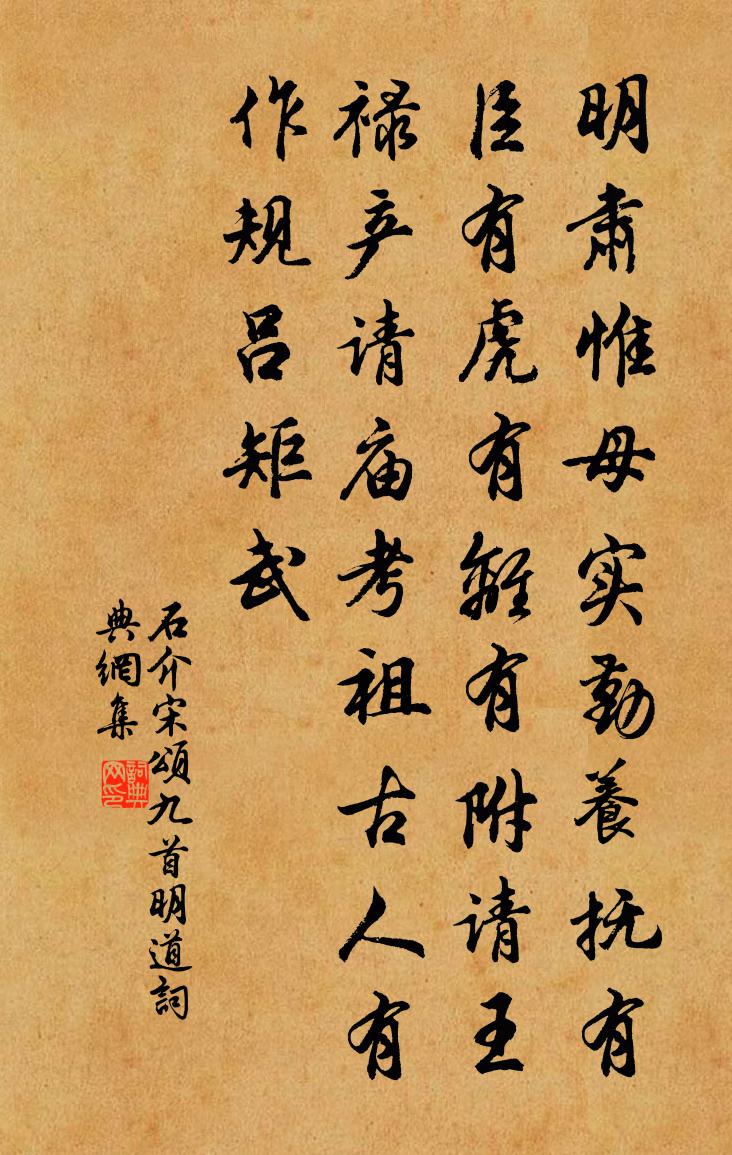 明肃惟母实勤養抚有
臣有虎有有附请王
禄产请庙考祖古人有
作规吕矩武
石介宋頌九首明道詞
典網集
詞典
网印